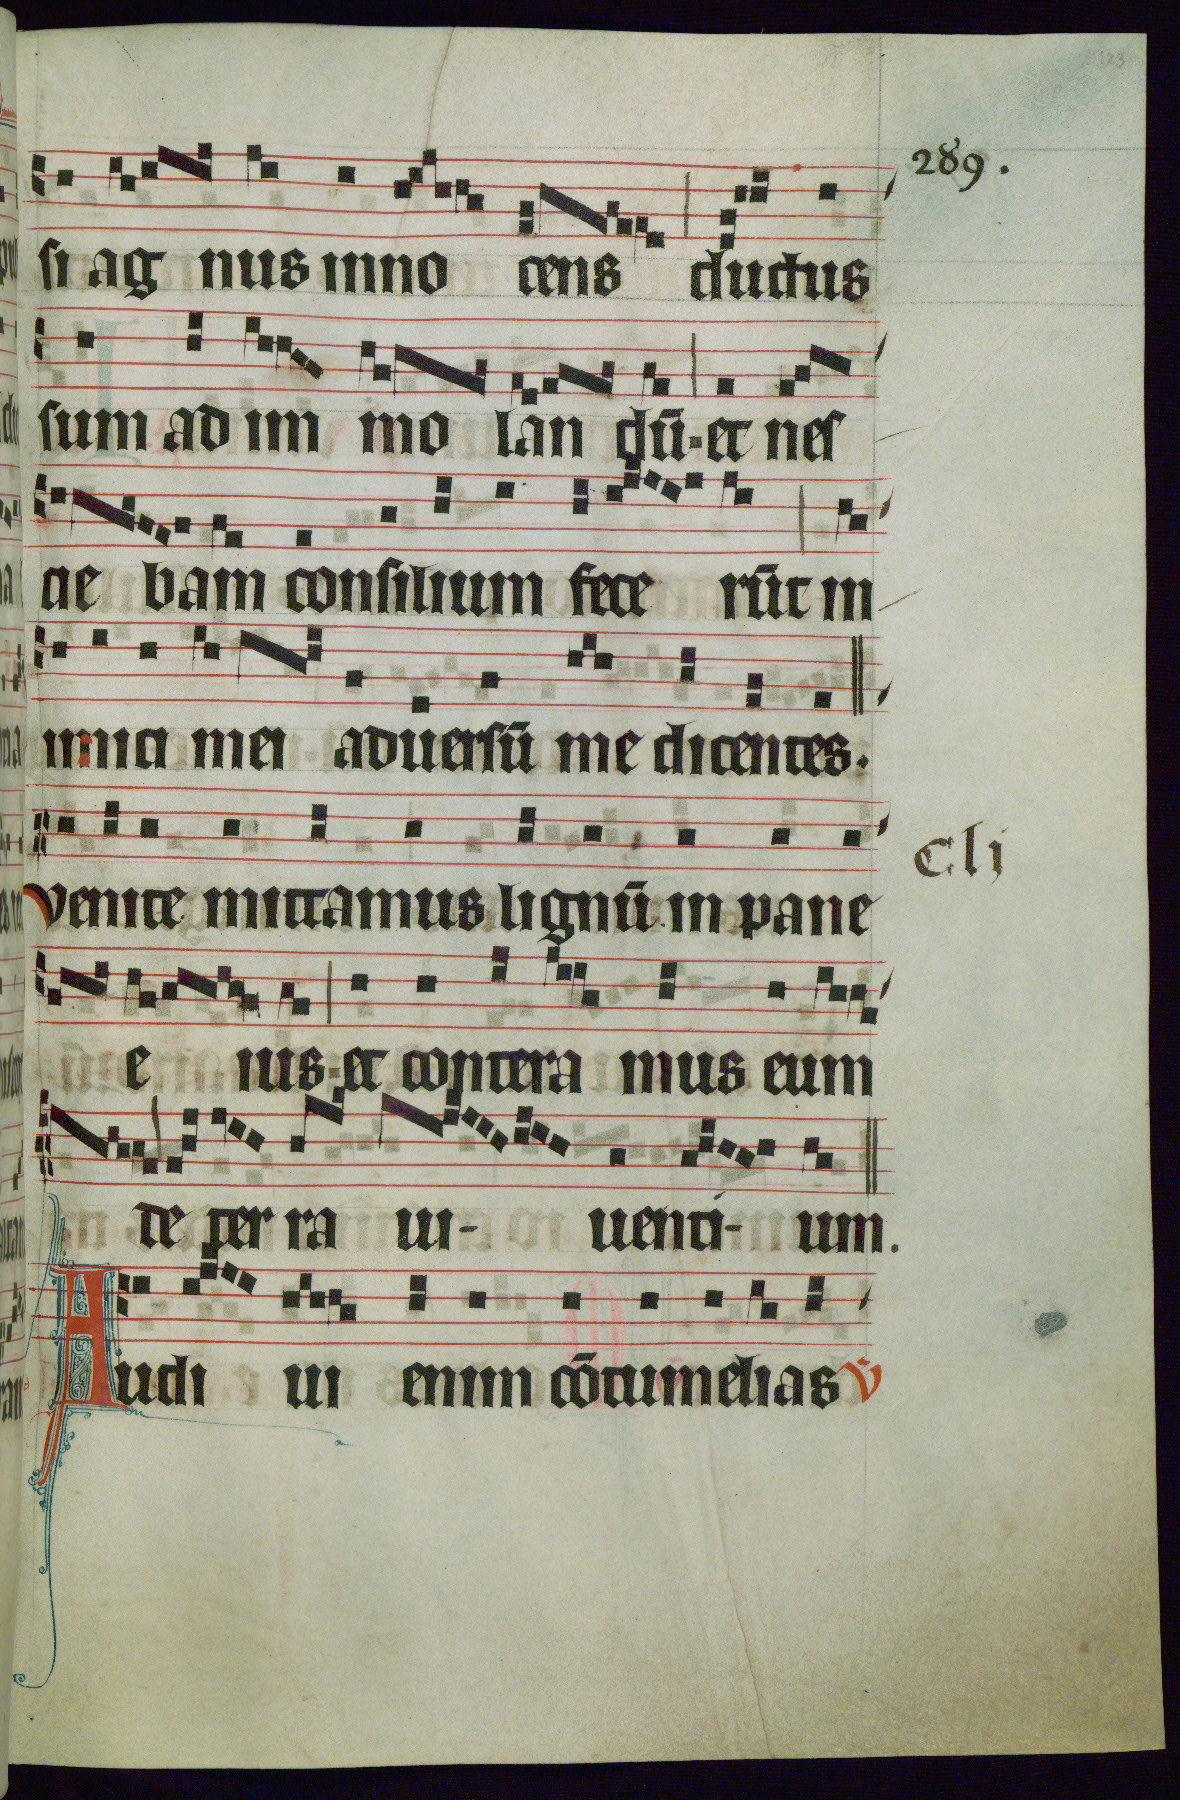 123
289.
si ag nus inno cens ductus
sum ad im mo lan dū-et nes
cie bam consilium fece rūt in
imici mei aduersū me dicentes.
venite mittamus lignū in pane
Cli
e ius-et contera mus eum
de ter ra ui- uenti- um.
Audi ui enim cōtumelias v̄